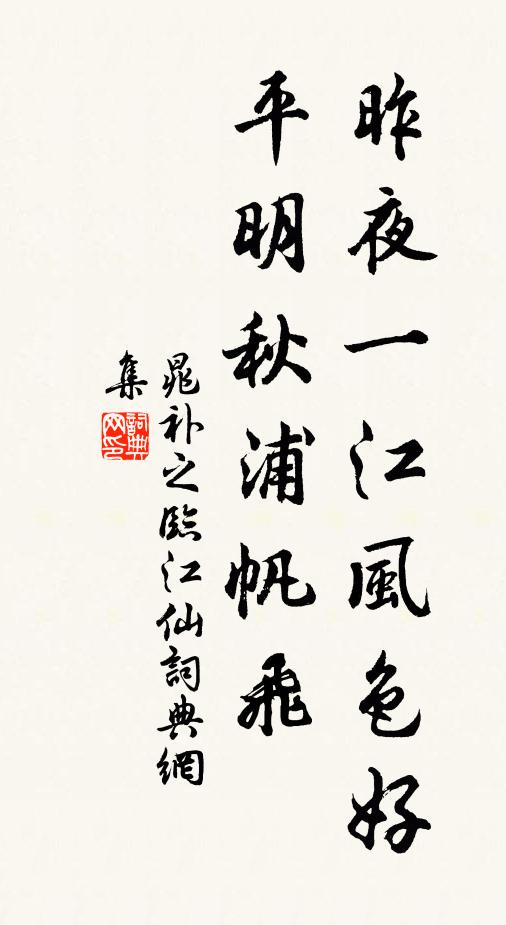 昨夜一江風色好
平明秋浦帆飛
晁补之臨江仙詞典網
集
詞典
网印